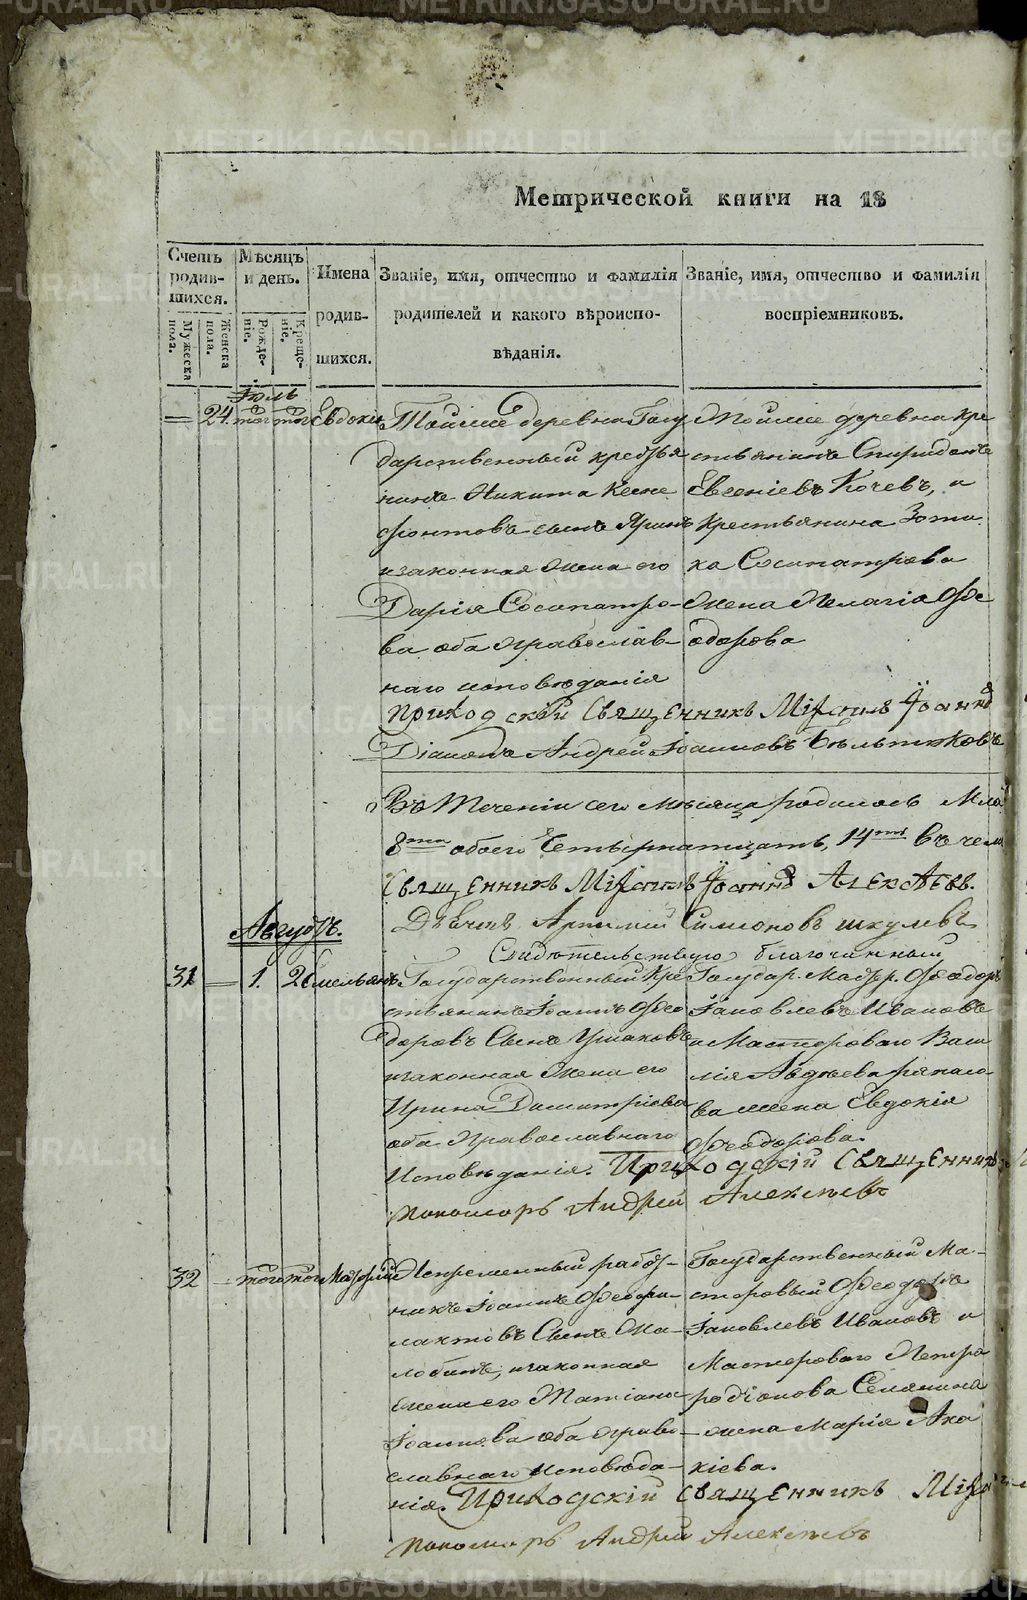 METRIKI.GASO-URAL.RU
Метрической книги на 18
Счетъ родив-шихся.
Мужеска пола.
Женска пола.
Мѣсяцъ и день.
Рожде-ніе.
Креще-ніе.
Имена родив-шихся.
Званіе, имя, отчество и фамилія родителей и какого вѣроиспо-вѣданія.
Званіе, имя, отчество и фамилія воспріемниковъ.
Іюль
24 того того Евдокія
Тойже деревни Госу
дарственный крестья
нинъ Никита Ксено
фонтовъ сынъ
и законная жена его
Дарія Сосипатро-
ва оба православ-
наго исповѣданія
Тойже деревни кре
стьянинъ Спиридонъ
Евсеніевъ Кочевъ, и
крестьянина Зоти
ка Сосипатрова
жена Пелагія Фе
одорова
Приходскій Священникъ Іоаннъ
Діаконъ Андрей Іоанновъ
Въ теченіи сего мѣсяца родилось
8 обоего Четырнатцать, 14 въ чем
Священникъ Іоаннъ Алексѣевъ.
Дьячекъ Артемій Симеоновъ
Свидѣтельствую благочинный
Августъ.
31 1. 2 Емельянъ
Государственный Кре
стьянинъ Іоаннъ Фео
доровъ Сынъ Ушаковъ
и законная Жена его
Ирина Димитріева
оба Православнаго
Исповѣданія.
Государ. Мастер. Феодоръ
Іаковлевъ Ивановъ
и Мастероваго Васи
лія Авдѣева
ва жена Евдокія
Феодорова.
Приходскій Священникъ
пономарь Андрей Алексѣевъ
32 того того
Непременный работ-
никъ Іоаннъ Феофи-
лактовъ Сынъ
и законная
жена его Татіана
Іоаннова оба право
славнаго исповѣда-
нія.
Государственный Ма-
стеровый Феодоръ
Іаковлевъ Ивановъ и
Мастероваго Петра
Родіонова Селянина
жена Марія Ака
кіева.
Приходскій Священникъ
пономарь Андрей Алексѣевъ